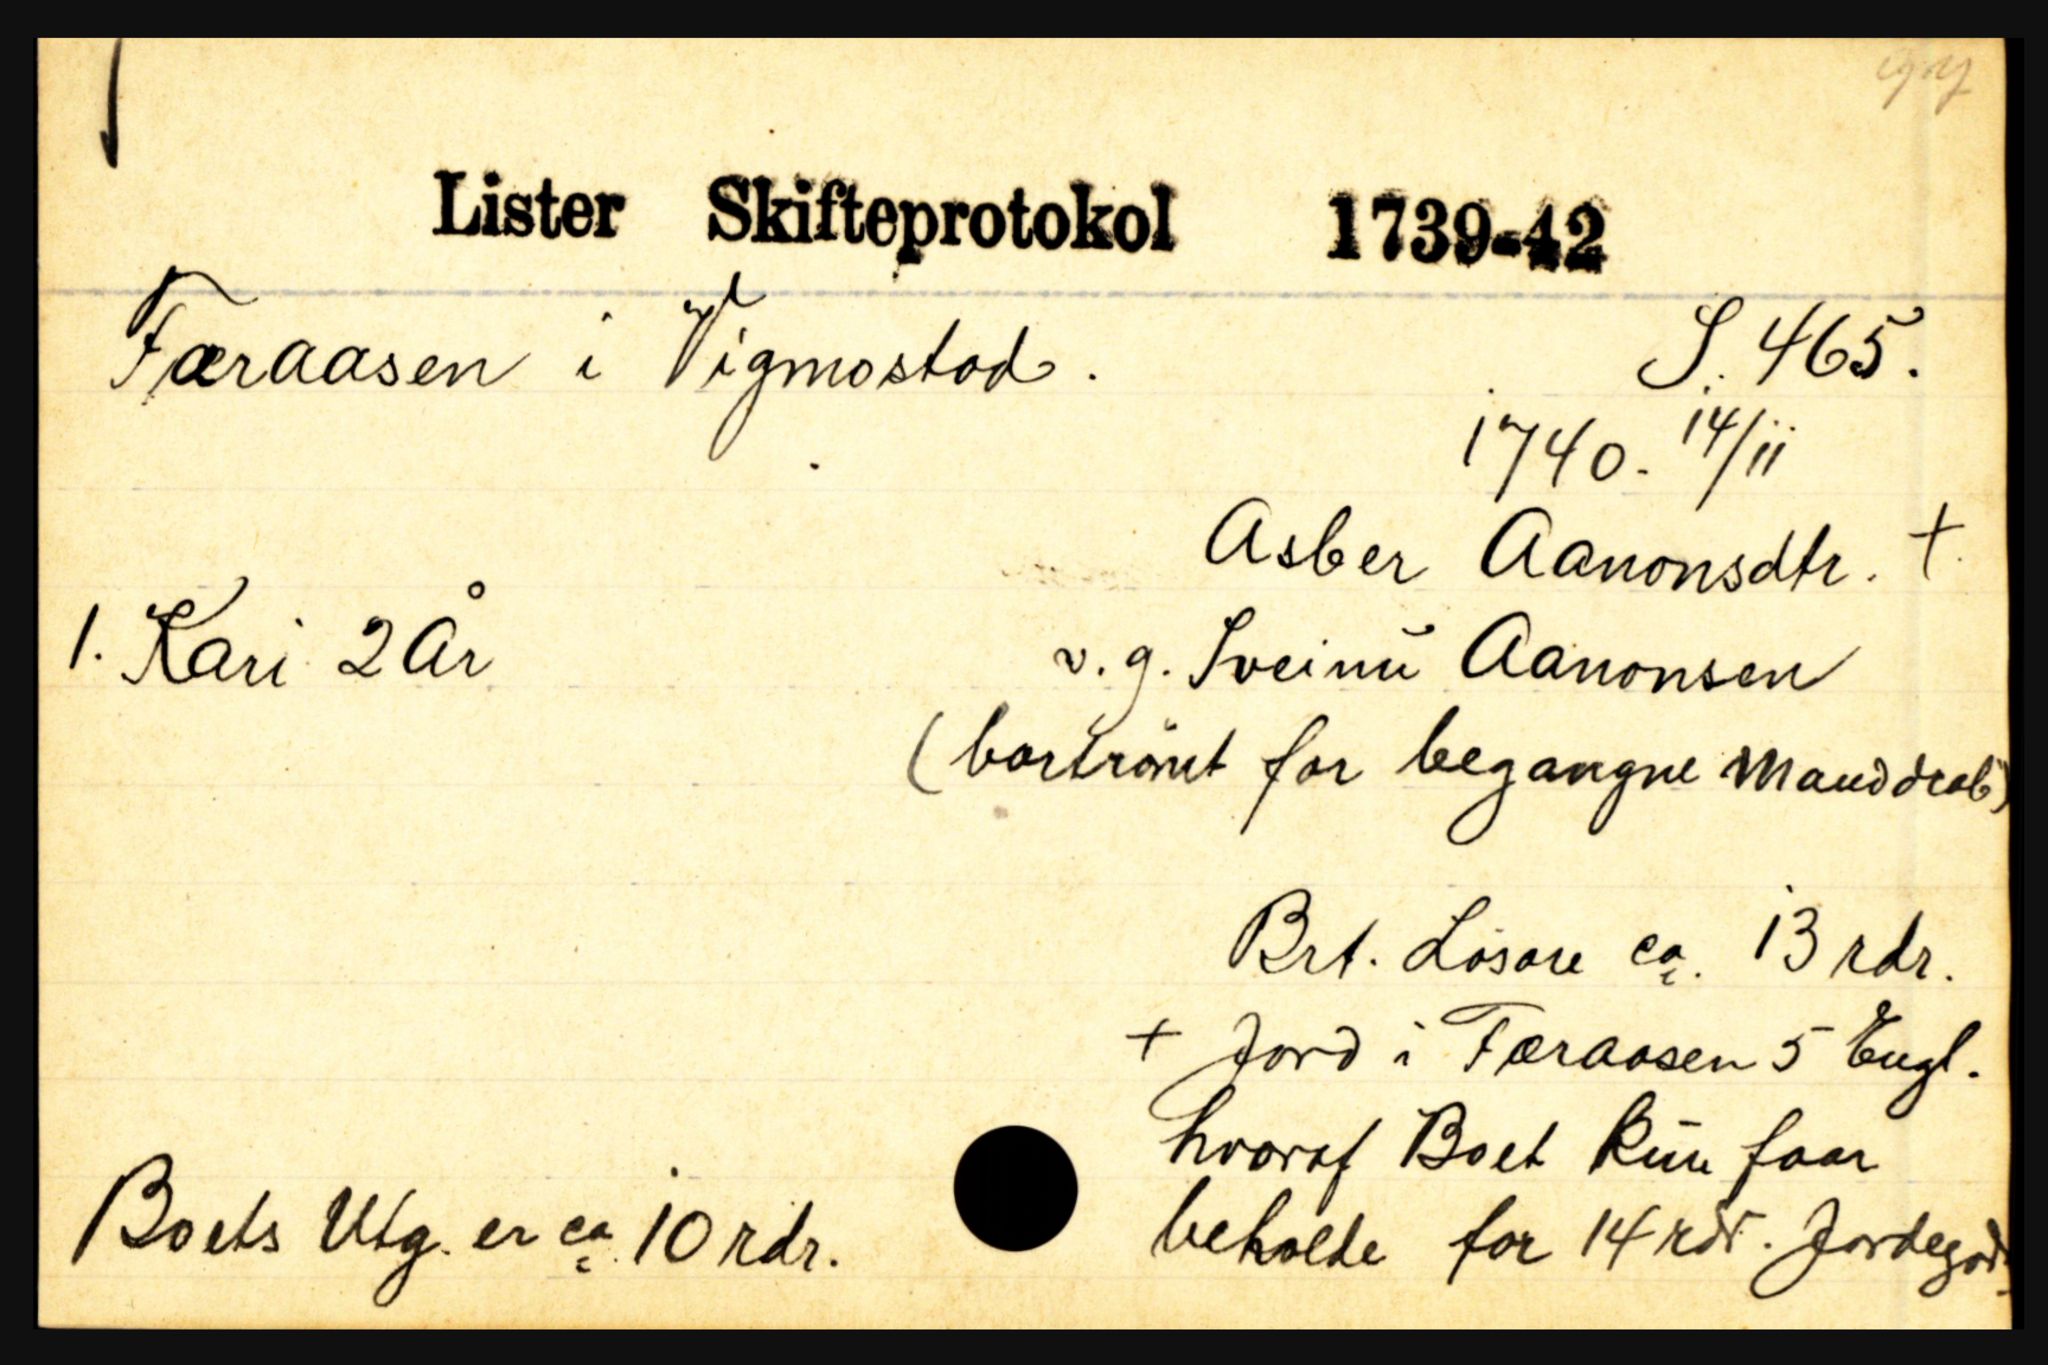 Lister Skifteprotokol 1739-42
Færaasen i Vigmostad. S. 465.
1740. 14/11
Asber Aanonsdtr. +
1. Kari 2 År v. g. Sveinŭ Aanonsen
(bortrömt for begangne Manddrab)
Brt. Lösöre ca. 13 rdr.
+ Jord i Færaasen 5 Engl.
hvoraf Boet kŭn faar
Boets Utg. er ca. 10 rdr. beholde for 14 rdr. Jordegods